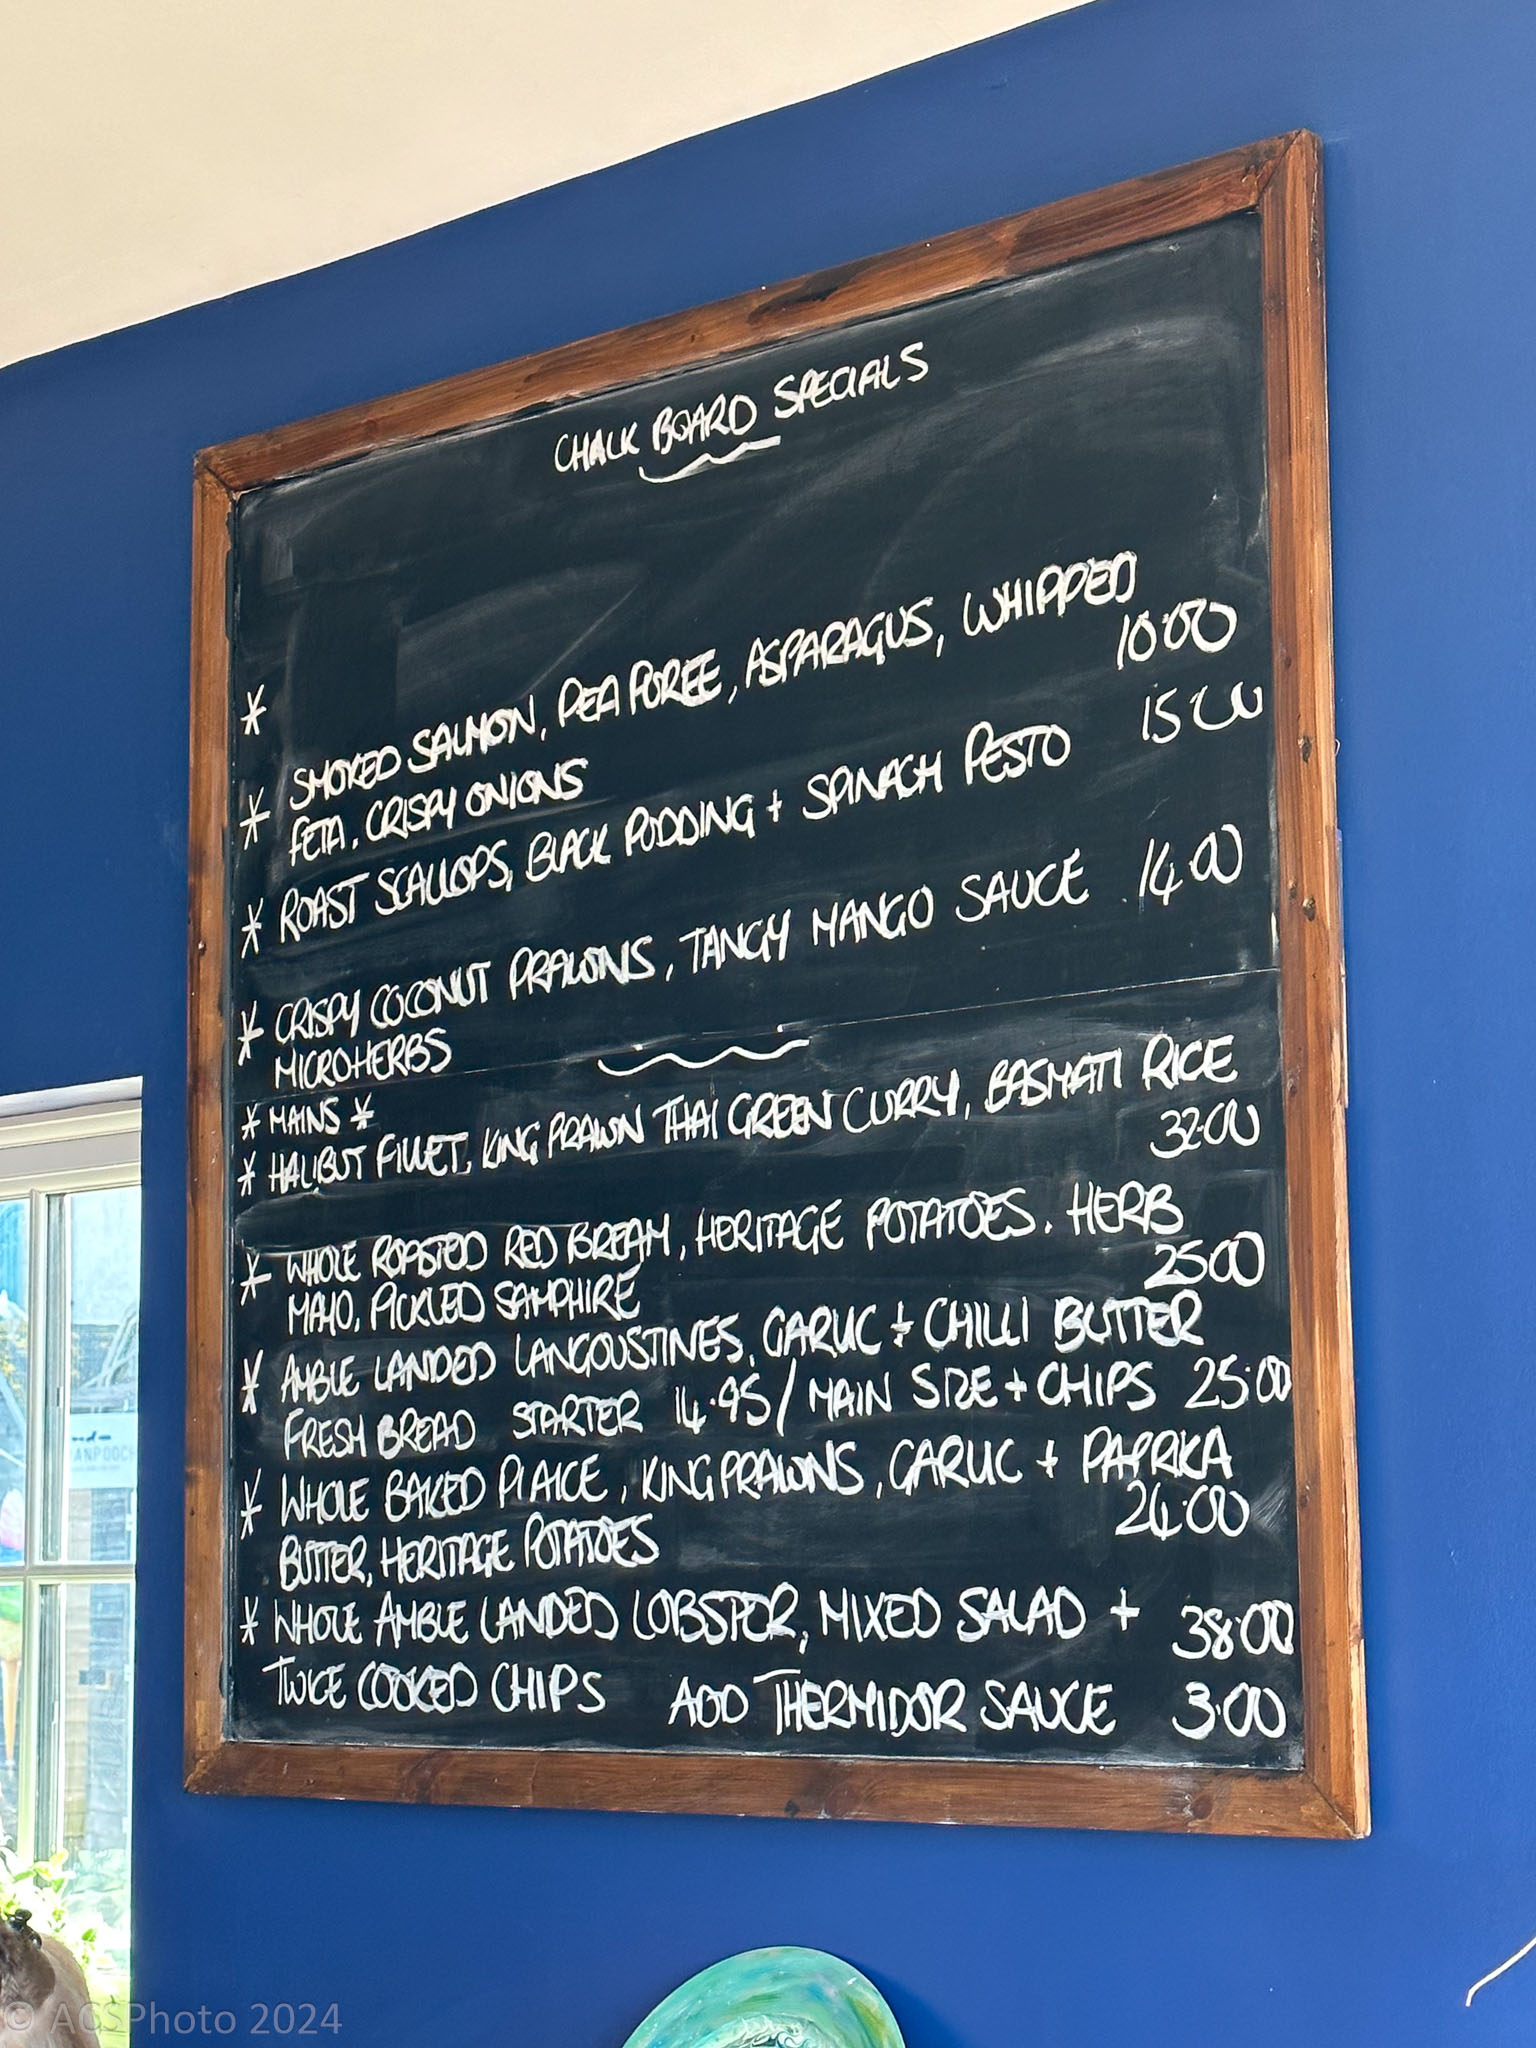 CHALK BOARD SPECIALS
*
* SMOKED SALMON, PEA PUREE, ASPARAGUS, WHIPPED
FETA, CRISPY ONIONS 10.00
* ROAST SCALLOPS, BLACK PUDDING + SPINACH PESTO 15.00
* CRISPY COCONUT PRAWNS, TANGY MANGO SAUCE 14.00
MICROHERBS
* MAINS *
* HALIBUT FILLET, KING PRAWN THAI GREEN CURRY, BASMATI RICE
32.00
* WHOLE ROASTED RED BREAM, HERITAGE POTATOES. HERB
MAYO, PICKLED SAMPHIRE 25.00
* AMBLE LANDED LANGOUSTINES, GARLIC + CHILLI BUTTER
FRESH BREAD STARTER 14.95 / MAIN SIZE + CHIPS 25.00
* WHOLE BAKED PLAICE, KING PRAWNS, GARLIC + PAPRIKA
BUTTER, HERITAGE POTATOES 24.00
* WHOLE AMBLE LANDED LOBSTER, MIXED SALAD + 38.00
TWICE COOKED CHIPS ADD THERMIDOR SAUCE 3.00
© AGSPhoto 2024